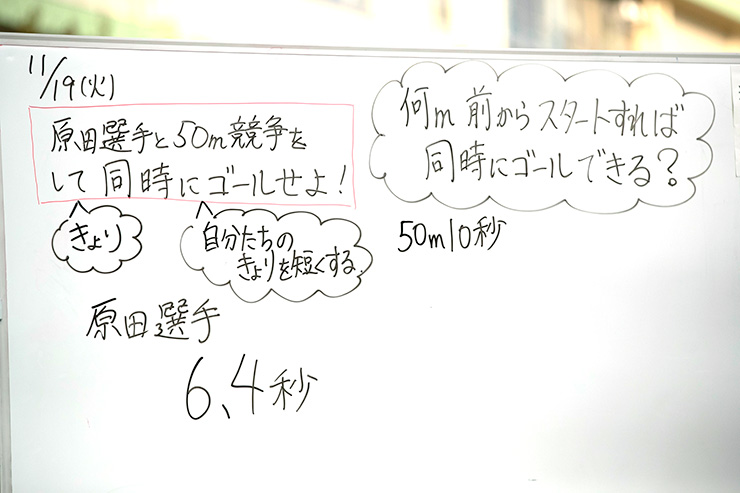 11/19(火)
原田選手と50m競争を
して同時にゴールせよ!
きょり
自分たちの
きょりを短くする。
原田選手
6、4秒
何m前からスタートすれば
同時にゴールできる?
50m10秒